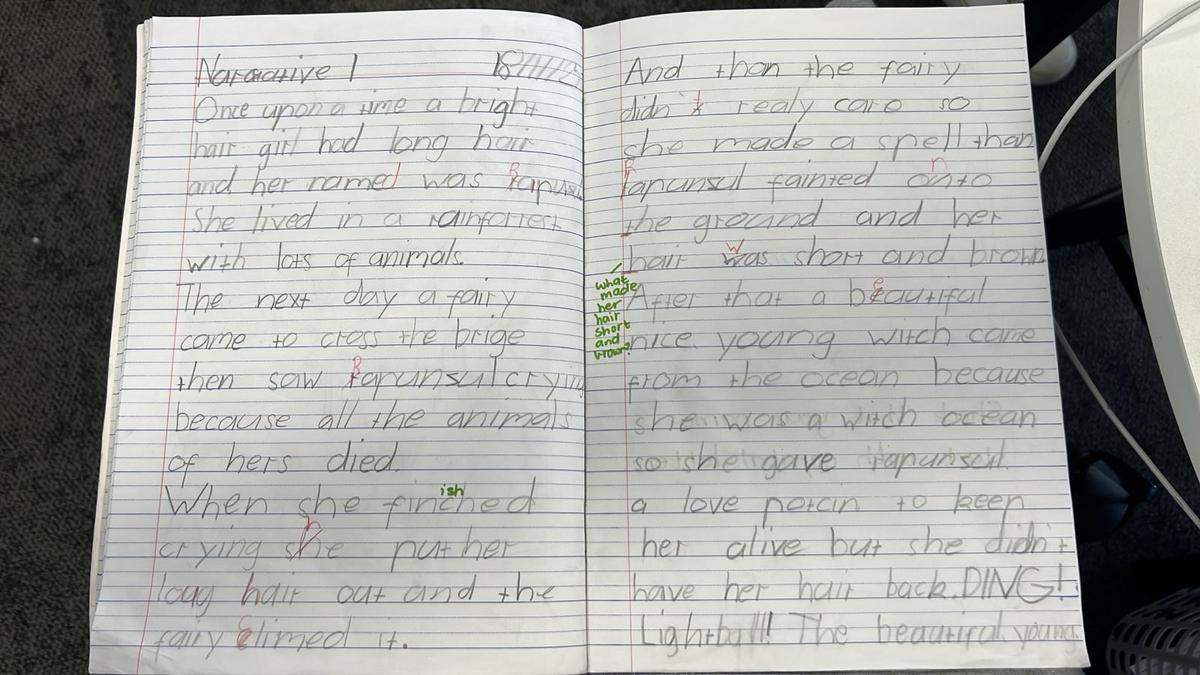 Narrative 1
Once upon a time a bright
hair girl had long hair
and her named was Rapunsul
She lived in a rainforrest
with lots of animals.
The next day a fairy
came to cross the brige
then saw Rapunsul crying
because all the animals
of hers died.
When she finished
crying she put her
long hair out and the
fairy climed it.
And than the fairy
didn't realy care so
she made a spell than
Rapunsul fainted onto
the ground and her
hair was short and brown
what
made
her
hair
short
and
brown?
After that a beautiful
nice young witch came
from the ocean because
she was a witch ocean
so she gave rapunsul
a love potcin to keep
her alive but she didn't
have her hair back. DING!
Lightball! The beautiful young